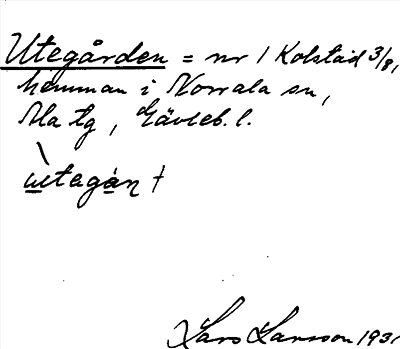 Utegården = nr 1 Kolstad 3/8,
hemman i Norrala sn,
Ala tg, Gävleb. l.
ɯtagàn †
Lars Larsson 1931